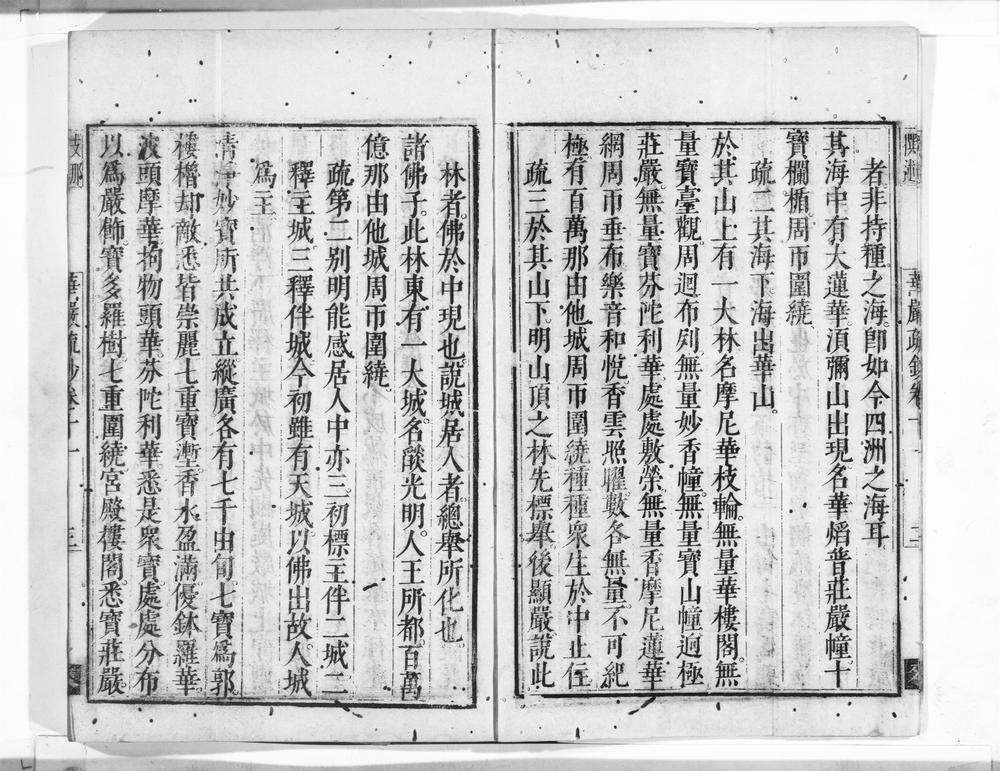 者非持種之海卽如今四洲之海耳
其海中有大蓮華須彌山出現名華焰普莊嚴幢十
寶欄楯周帀圍繞
疏二其海下海出華山。
於其山上有一大林名摩尼華枝輪無量華樓閣無
量寶臺觀周迴布列無量妙香幢無量寶山幢迥極
莊嚴無量寶芬陀利華處處敷榮無量香摩尼蓮華
網周帀垂布樂音和悅香雲照耀數各無量不可紀
極有百萬那由他城周帀圍繞種種衆生於中止住
疏三於其山下明山頂之林先標舉後顯嚴說此
華嚴疏鈔卷十一 三
林者佛於中現也說城居人者總舉所化也
諸佛子此林東有一大城名𦦨光明人王所都百萬
億那由他城周帀圍繞
疏第二別明能感居人中亦三初標主伴二城二
釋主城三釋伴城今初雖有天城以佛出故人城
爲王
清淨妙寶所共成立縱廣各有七千由旬七寶爲郭
樓櫓却敵悉皆崇麗七重寶塹香水盈滿優鉢羅華
波頭摩華拘物頭華芬陀利華悉是衆寶處處分布
以爲嚴飾寶多羅樹七重圍繞宮殿樓閣悉寶莊嚴
華嚴疏鈔卷十一 三